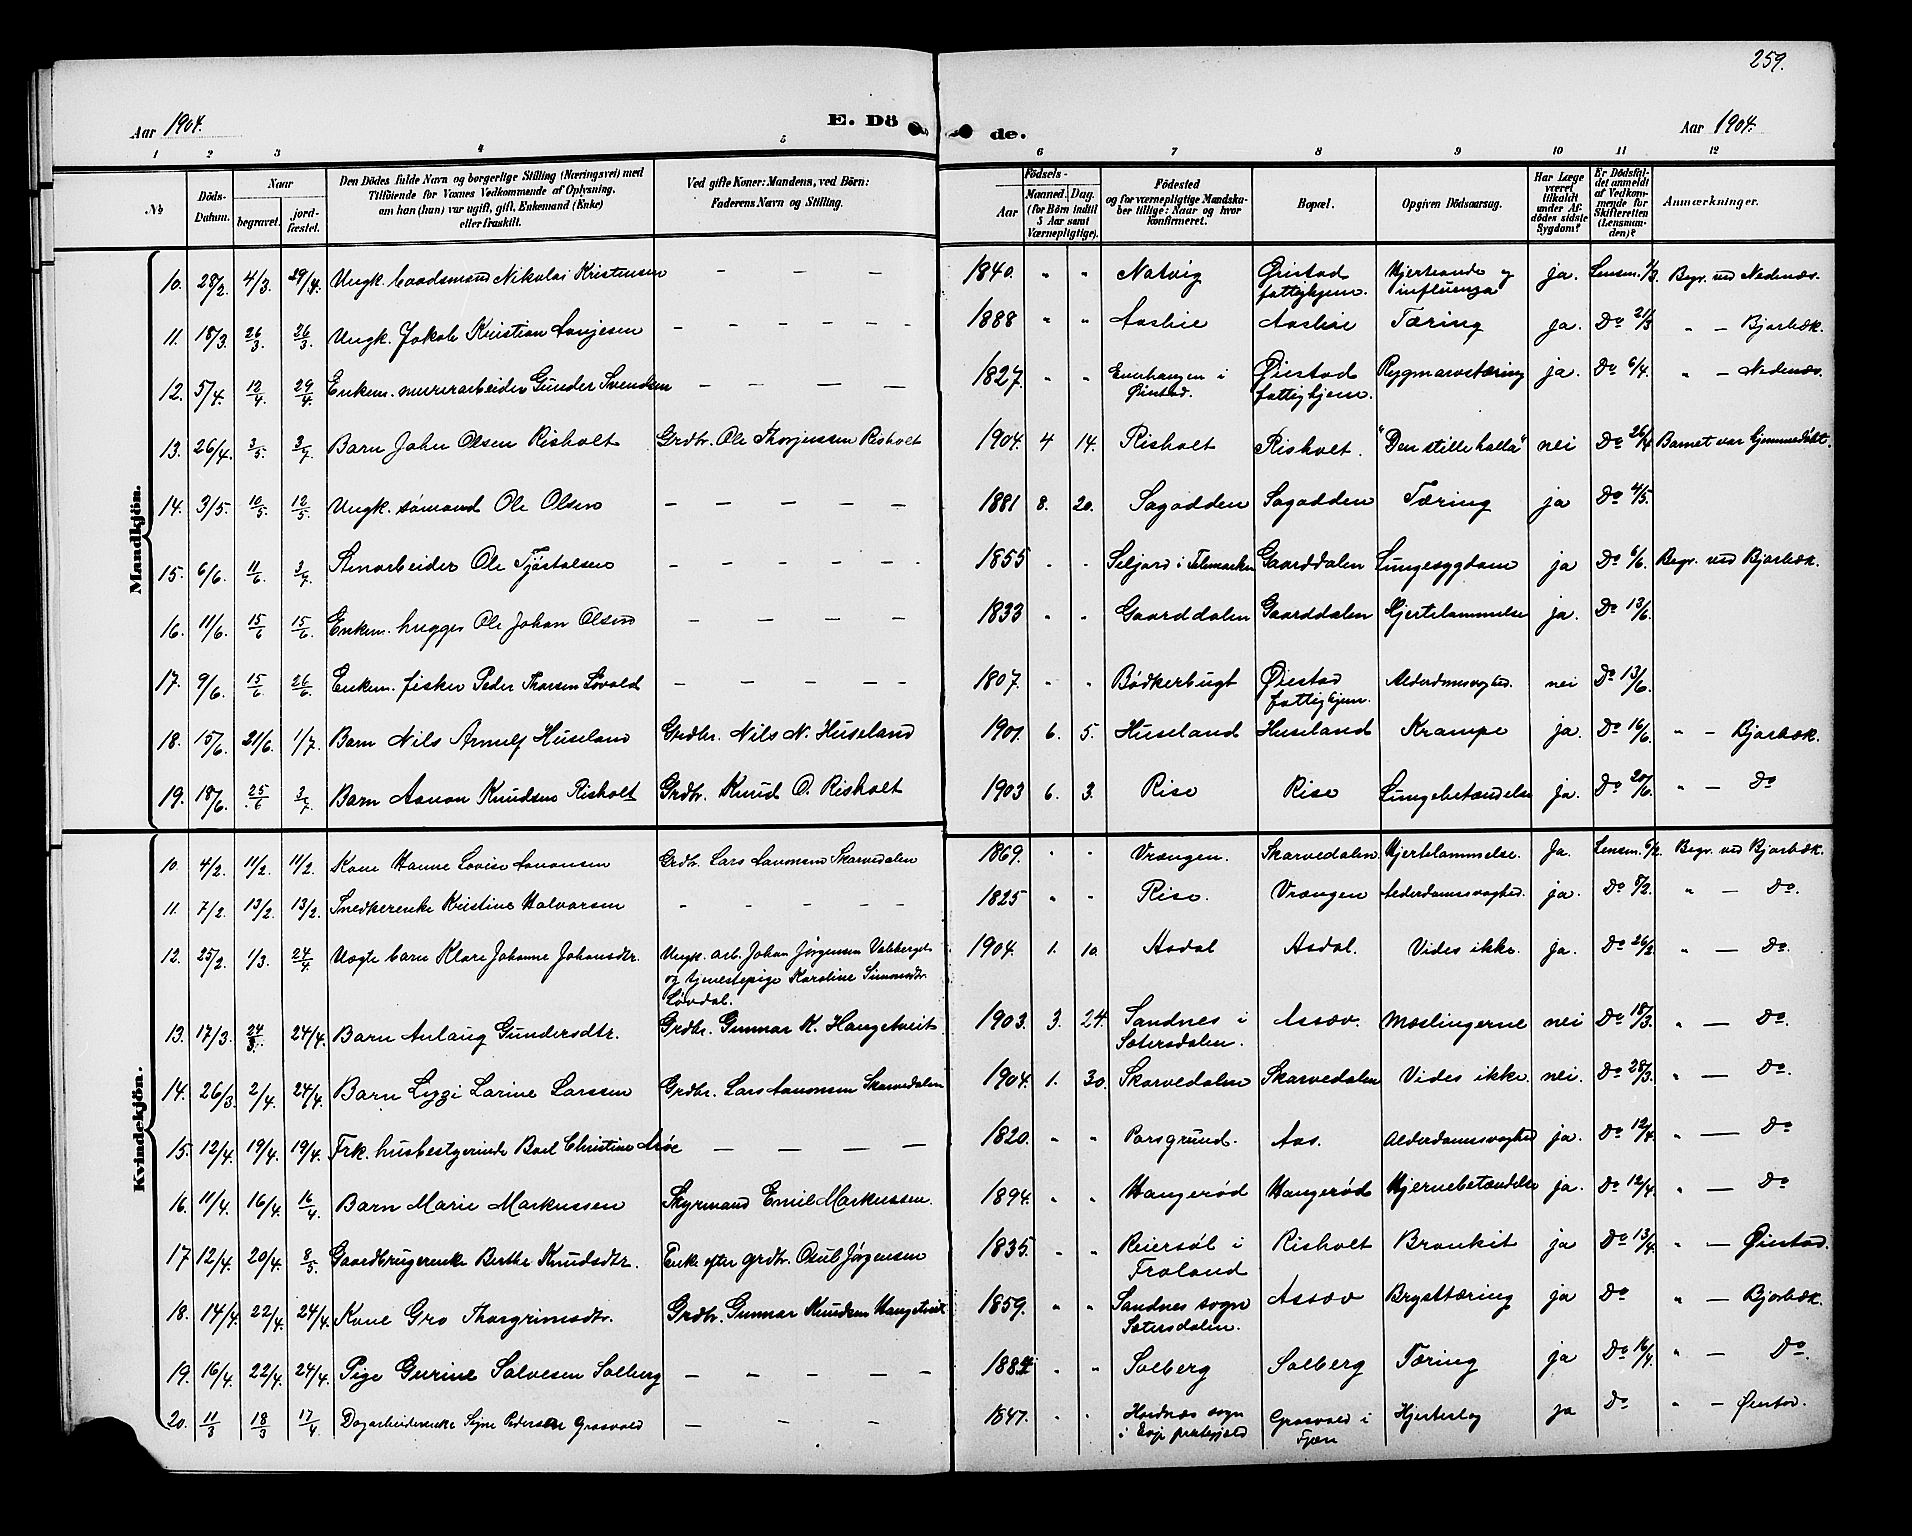 259.
Aar 1904. E. Dö de. Aar 1904.
1 2 3 4 5 6 7 8 9 10 11 12
№ Döds-Datum. Naar begravet. jord-fæstet. Den Dödes fulde Navn og borgerlige Stilling (Næringsvei) med Tilföiende for Voxnes Vedkommende af Oplysning, om han (hun) var ugift, gift, Enkemand (Enke) eller fraskilt. Ved gifte Koner: Mandens, ved Börn: Faderens Navn og Stilling. Födsels- Aar Maaned. Dag. (for Börn indtil 5 Aar samt Værnepligtige). Födested og for værnepligtige Mandskaber tillige: Naar og hvor konfirmeret. Bopæl. Opgiven Dödsaarsag. Har Læge været tilkaldt under Afdödes sidste Sygdom? Er Dödsfaldet anmeldt af Vedkommende for Skifteretten (Lensmanden)? Anmærkninger.
Mandkjön.
10. 28/2. 4/3. 29/4. Ungk. baadsmand Nikolai Kristensen — — — 1840. " " Natvig Øiestad fattighjem. Hjerteonde og influenza ja. Lensm. 1/3. Begr. ved Nedenæs.
11. 18/3. 26/3. 26/3. Ungk. Jakob Kristian Lavjesen — — — — — 1888 " " Aaslie Aaslie Tæring ja. Do 21/3 " — Bjorbæk.
12. 5/4. 12/4. 29/4. Enkem. murerarbeider Gunder Svendsen — — — — 1827. " " i Øiestad. Øiestad fattighjem. Rygmarvstæring ja. Do 6/4. " — Nedenæs.
13. 26/4. 3/5. 3/7. Barn John Olsen Risholt Grdbr. Ole Thorjussen Risholt 1904. 4 14. Risholt Risholt. "Den stille kolla" nei Do 26/4 Barnet var hjemmedøbt.
14. 3/5. 10/5. 12/5. Ungk. sømand Ole Olsen — — — — — 1881 8. 20. Sagodden Sagodden Tæring ja Do 4/5.
15. 6/6. 11/6. 3/7. Stenarbeider Ole Tjøstolsen — — — — — 1855 " " Seljord i Telemarken Gaarddalen Lungesygdom ja Do 6/6. Begr. ved Bjorbæk.
16. 11/6. 15/6 15/6. Enkem. hugger Ole Johan Olsen — — — — 1833 " " Gaarddalen Gaarddalen Hjertelammelse ja. Do 13/6.
17. 9/6. 15/6 26/6. Enkem. fisker Peder Thorsen Løvold — — — — — 1807. " " Bödkerbugt Øiestad fattighjem. Alderdomssvaghed. nei Do 13/6.
18. 15/6. 21/6. 1/7. Barn Nils Arnulf Huseland Grdbr. Nils N. Huseland 1901 6. 5. Huseland Huseland Krampe ja. Do 16/6. " — Bjorbæk.
19. 18/6. 25/6 3/7. Barn Aanon Knudsen Risholt Grdbr. Knud O. Risholt 1903 6. 3. Rise Rise Lungebetændelse ja. Do 20/6. " — Do
Kvindekjön.
10. 4/2. 11/2. 11/2. Kone Hanne Lovise Aanonsen Grdbr. Lars Aanonsen Skarvedalen 1869. " " Vrængen. Skarvedalen. Hjertelammelse. Ja. Lensm. 6/2. Begr. ved Bjorbæk.
11. 7/2. 13/2. 13/2. Snedkerenke Kristine Halvorsen — — — — — 1825 " " Rise. Vrængen Alderdomssvaghed. ja. Do 8/2. " — Do.
12. 25/2. 1/3. 24/4. Uægte barn Klara Johanne Johansdtr. Ungk. arb. Johan Jørgensen og tjenestepige Karoline Simonsdtr. Løvdal. 1904. 1. 10. Asdal Asdal. Vides ikke. ja. Do 26/2 " — Do.
13. 17/3. 24/3. 24/4. Barn Anlaug Gundersdtr. Grdbr. Gunnar K. Haugetveit 1903. 3. 24. Sandnes i Sætersdalen. Assæv. Mæslingerne nei Do 18/3. " — Do.
14. 26/3. 2/4. 24/4. Barn Lizzi Larine Larssen Grdbr. Lars Aanonsen Skarvedalen 1904. 1. 30. Skarvedalen Skarvedalen Vides ikke. nei. Do 28/3. " — Do.
15. 12/4. 19/4. 19/4. Frk. husbestyrinde Boel Christine Arøe — — — 1820. " " Porsgrund. Aas. Alderdomssvaghed ja. Do 12/4. " — Do
16. 11/4. 16/4. 16/4. Barn Marie Markussen Styrmand Emil Markussen. 1894. " " Haugerød Haugerød Hjernebetændelse ja. Do 12/4. " — Do
17 12/4. 20/4. 8/5. Gaardbrugerenke Berthe Knudsdtr. Enke efter grdbr. Osul Jørgensen 1835. " " Reiersøl i Froland Risholt Bronkit ja Do 13/4. " — Øiestad.
18. 14/4. 22/4. 24/4. Kone Gro Thorgrimsdtr. Grdbr. Gunnar Knudsen Haugetveit 1859. " " Sandnes sogn Sætersdalen. Assæv Brysttæring ja Do " — Bjorbæk.
19. 16/4. 22/4. 24/4. Pige Gurine Salvesen Solberg — — — — — 1884 " " Solberg Solberg Tæring ja Do 16/4. " — Do.
20. 11/3 18/3 17/4 Dagarbeiderenke Signe Pedersen Grosvold — — — 1847. " " Hordnæs sogn i Evje præstegjeld Grosvold i Fjære Hjerteslag ja Do " — Øiestad.